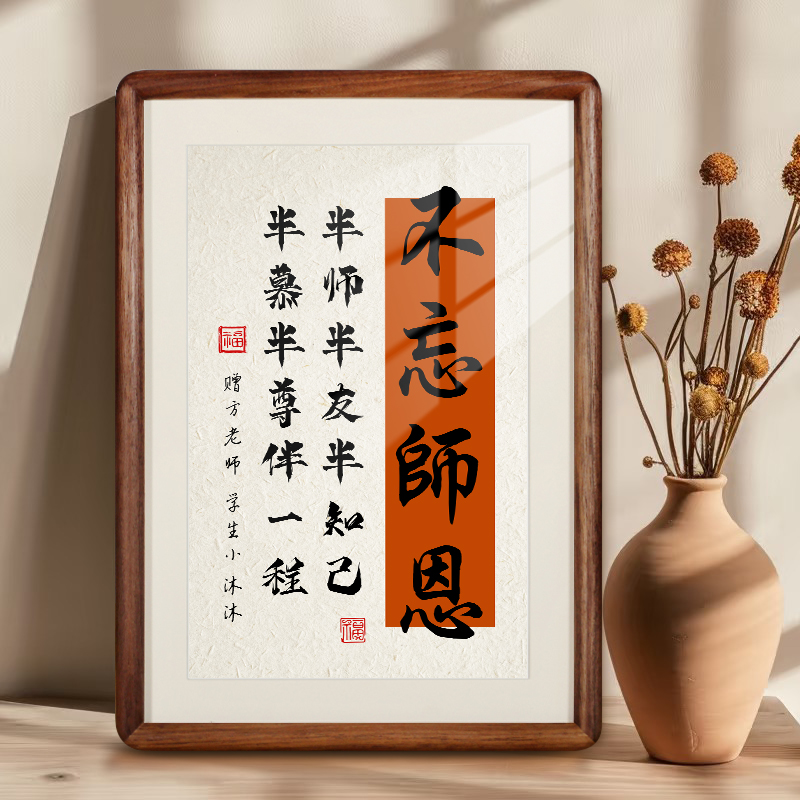 不忘師恩
半师半友半知己
福
半慕半尊伴一程
福
赠方老师 学生小沐沐